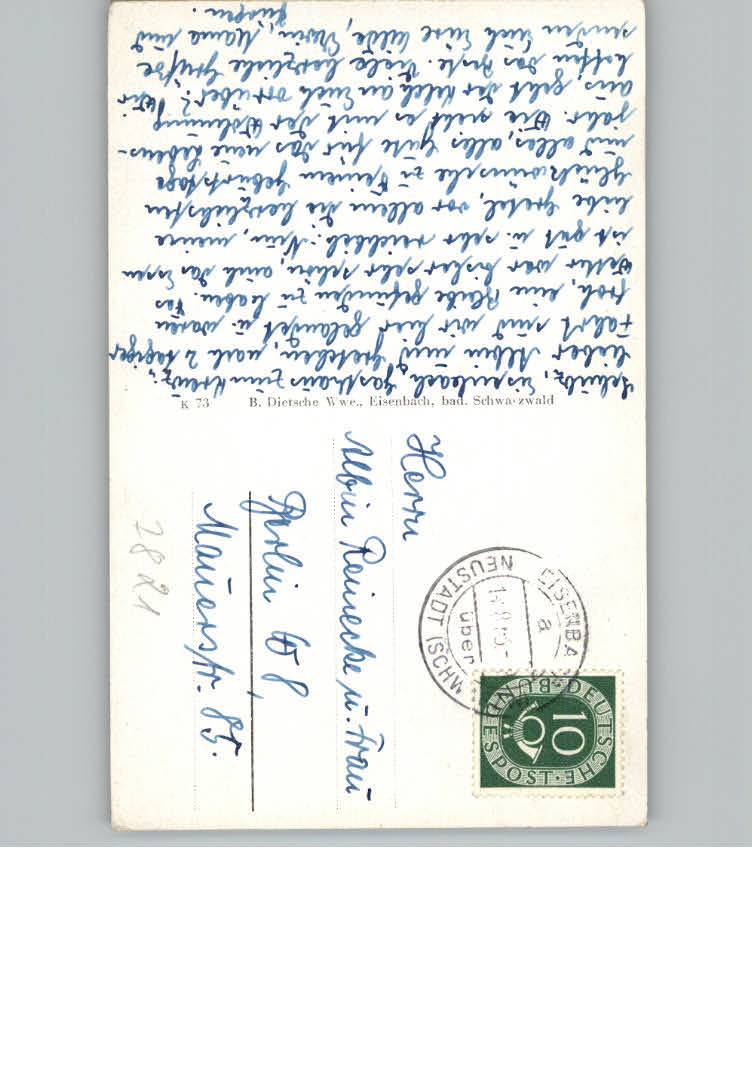 Schulz, Eisenbach, Gasthaus zum Kreuz:
Lieber Albin und Gretchen, nach 2 tägiger
Fahrt sind wir hier gelandet u. waren
froh, eine Bleibe gefunden zu haben. Das
Wetter war bisher sehr schön, auch das Essen
ist gut u. sehr reichlich. Nun, meine
liebe Gretel, vor allem die herzlichsten
Glückwünsche zu Deinem Geburtstage
und alles, alles Gute für das neue Lebens-
jahr. Wie sieht es mit der Wohnung
aus, geht der Kelch an Euch vorüber? Wir
hoffen das Beste. Viele herzliche Grüße
senden Euch Eure Hilde, Erwin, Mama und
Jürgen.
K 73 B. Dietsche Wwe., Eisenbach, bad. Schwarzwald
Herrn
Albin Reinecke u. Frau
Berlin W 8,
Mauerstr. 85.
2821
EISENBA
a
über
NEUSTADT (SCHW
DEUTSCHE BUNDESPOST
10